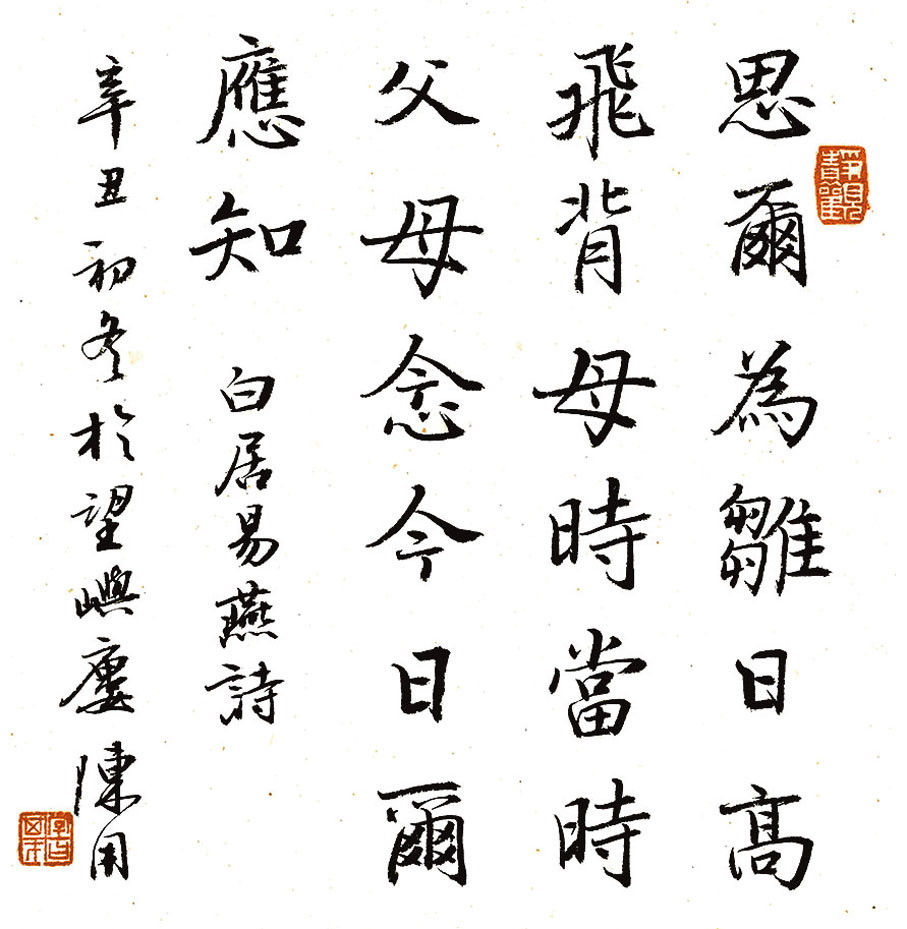 思爾為雛日髙
飛背母時當時
父母念今日爾
應知 白居易燕詩
辛丑初冬於望嶼廔 陳用
靜觀